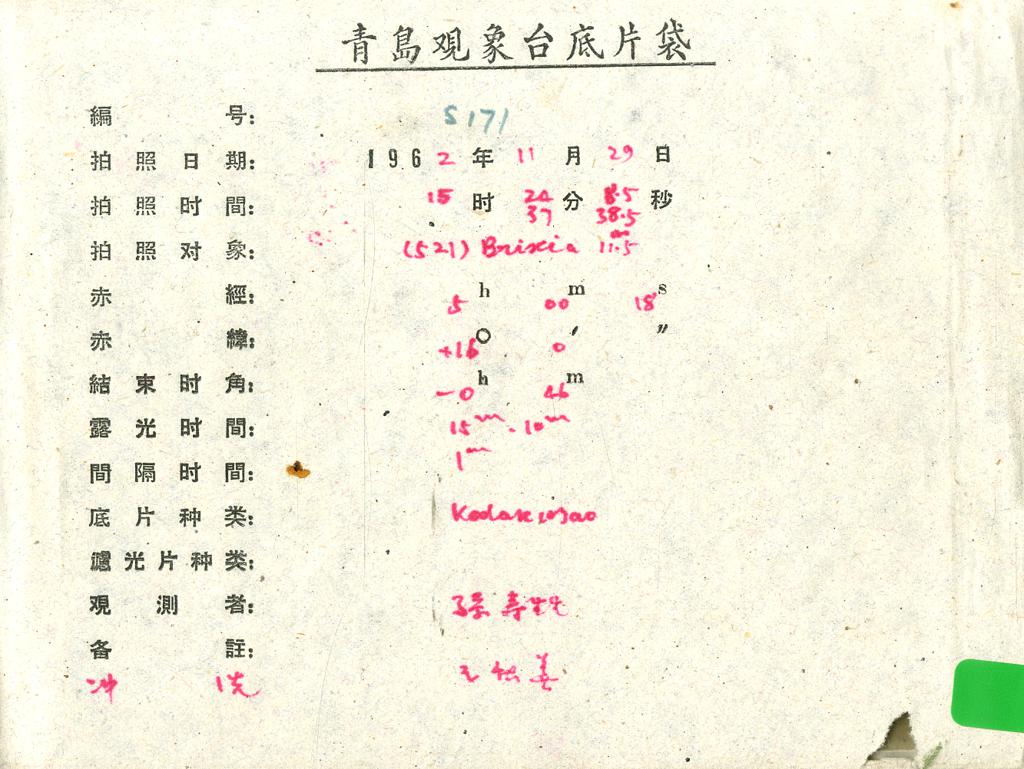 青島观象台底片袋
編号: S171
拍照日期: 1962年11月29日
拍照时間: 15时24分8.5秒
37 38.5
拍照对象: (521) Brixia 11.5
赤經: 5h 00m 18s
赤緯: +16° 0′ ″
結束时角: -0h 46m
露光时間: 15m . 10m
間隔时間: 1m
底片种类: Kodak 103aO
濾光片种类:
观測者: 孫寿
备註:
冲洗 王 姜